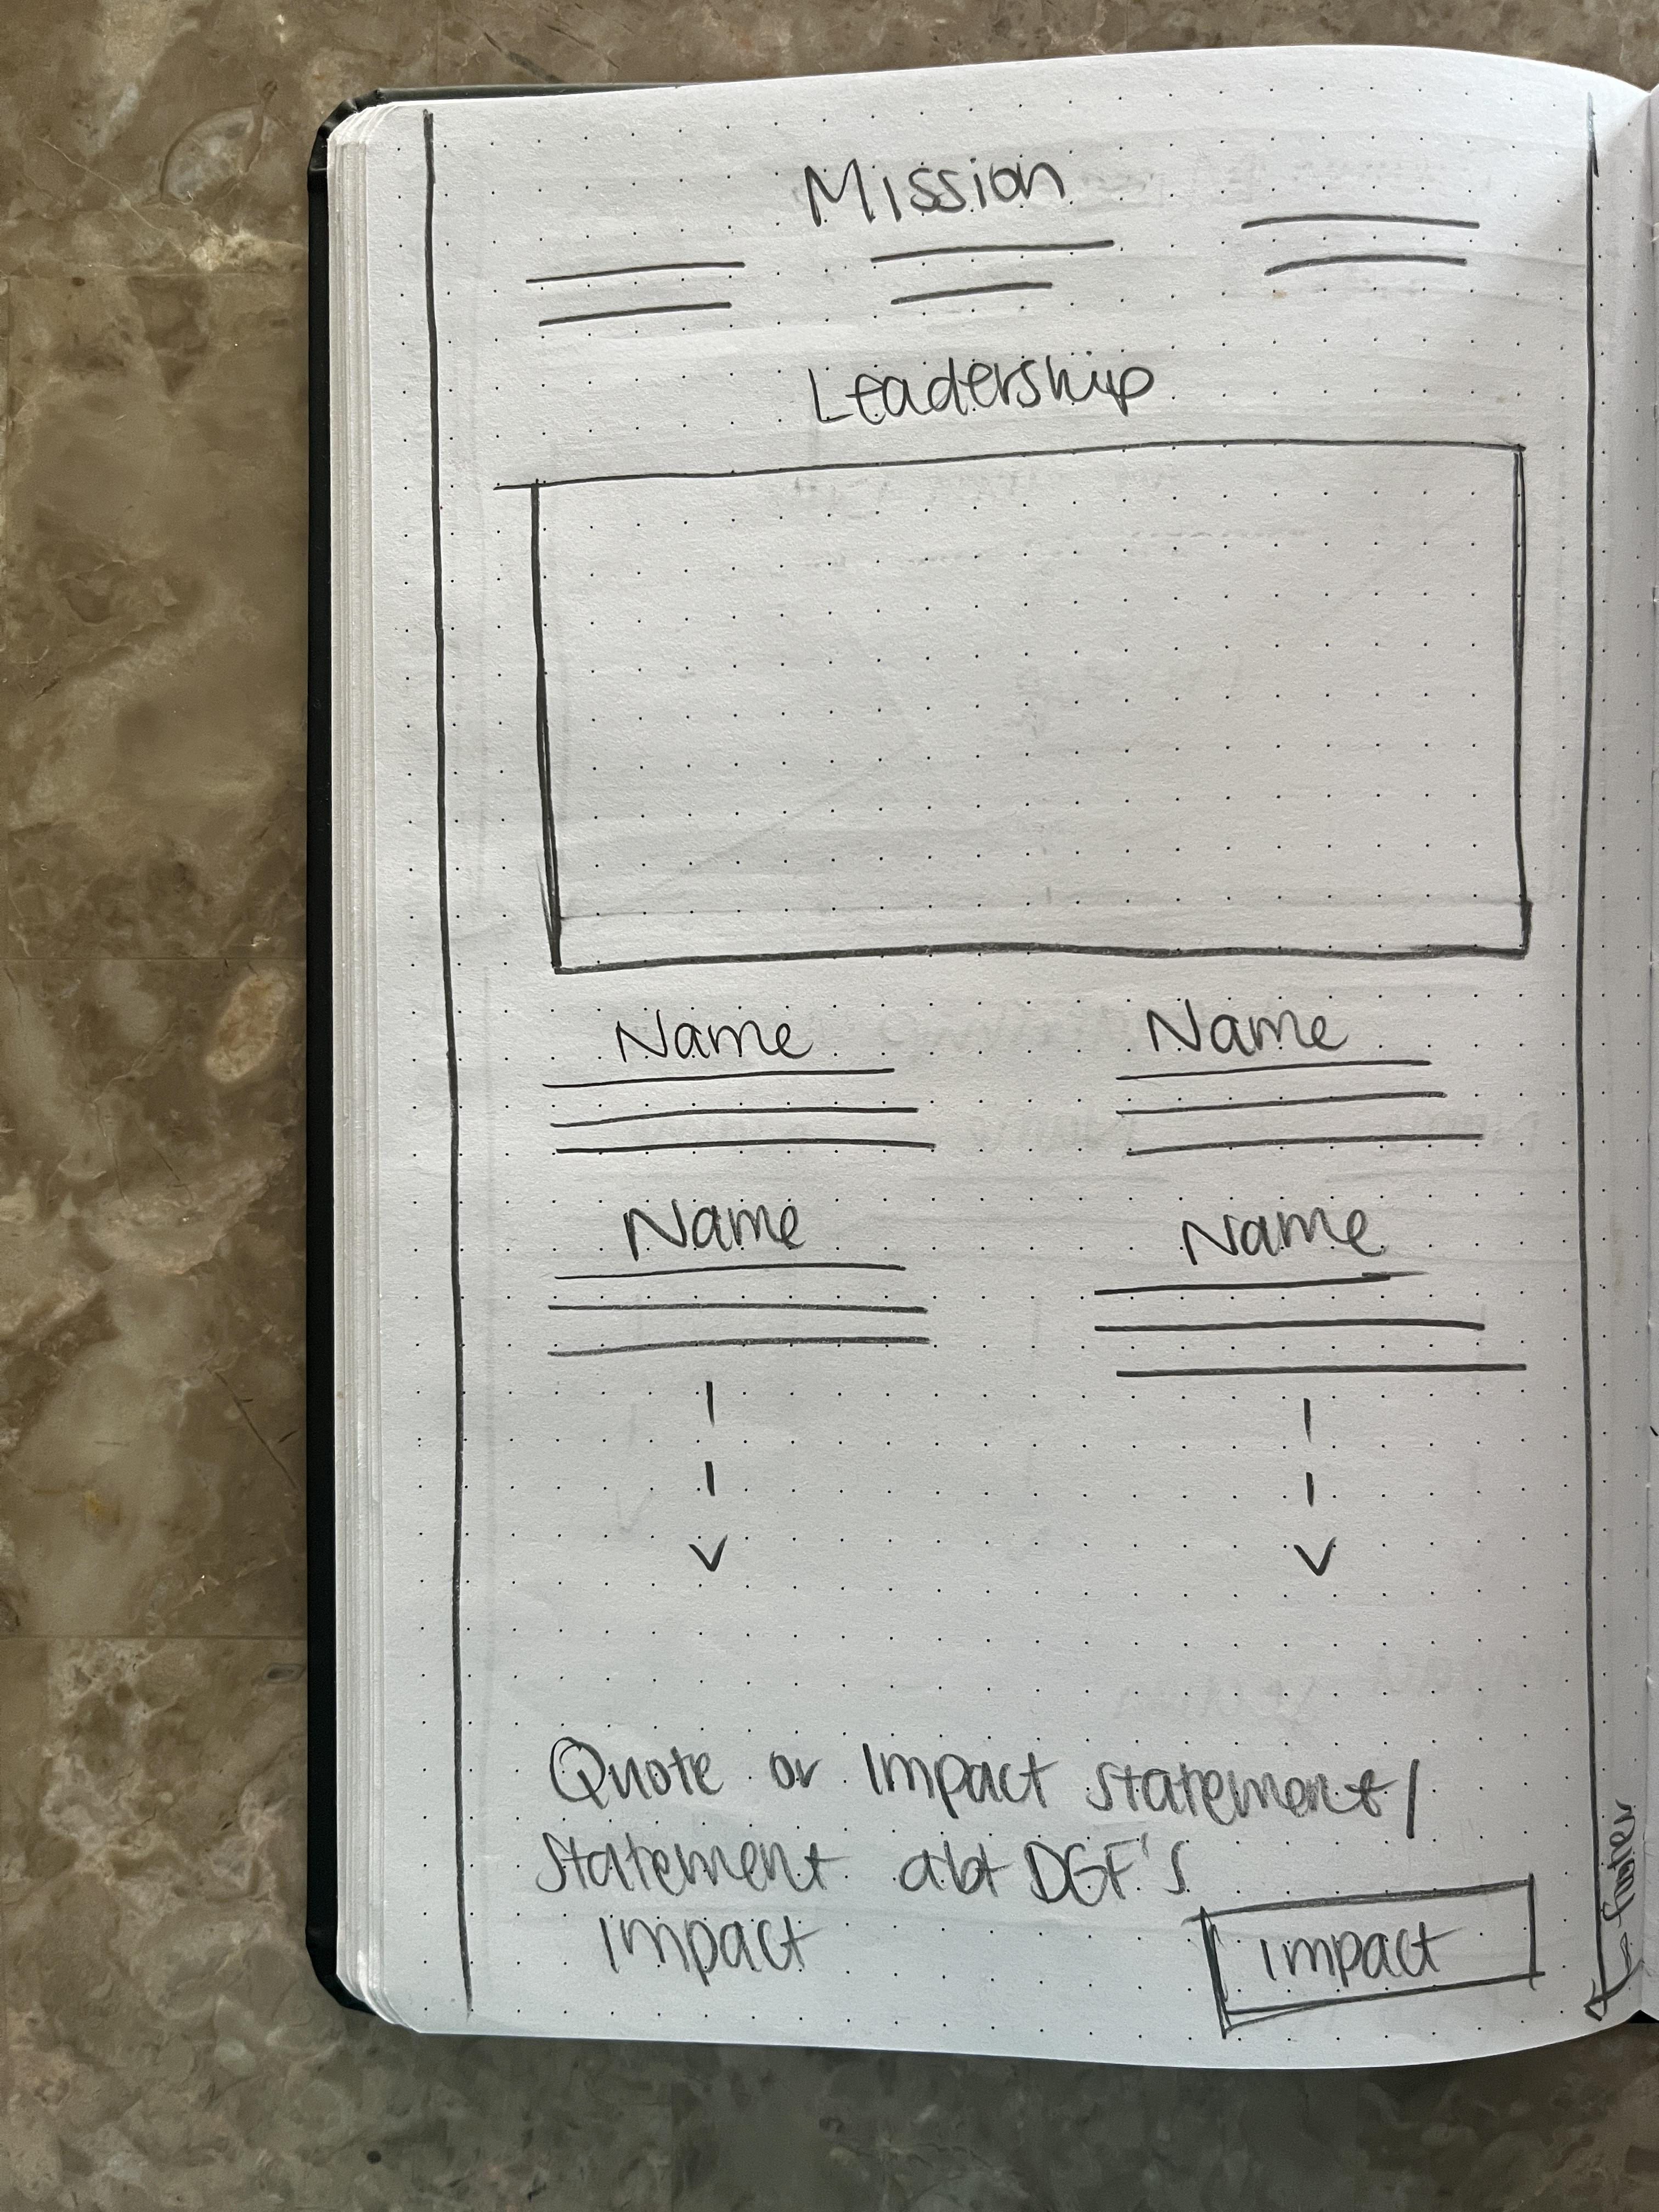 Mission
Leadership
Name Name
Name Name
Quote or Impact statement/
Statement abt DGF's
Impact
Impact
footer